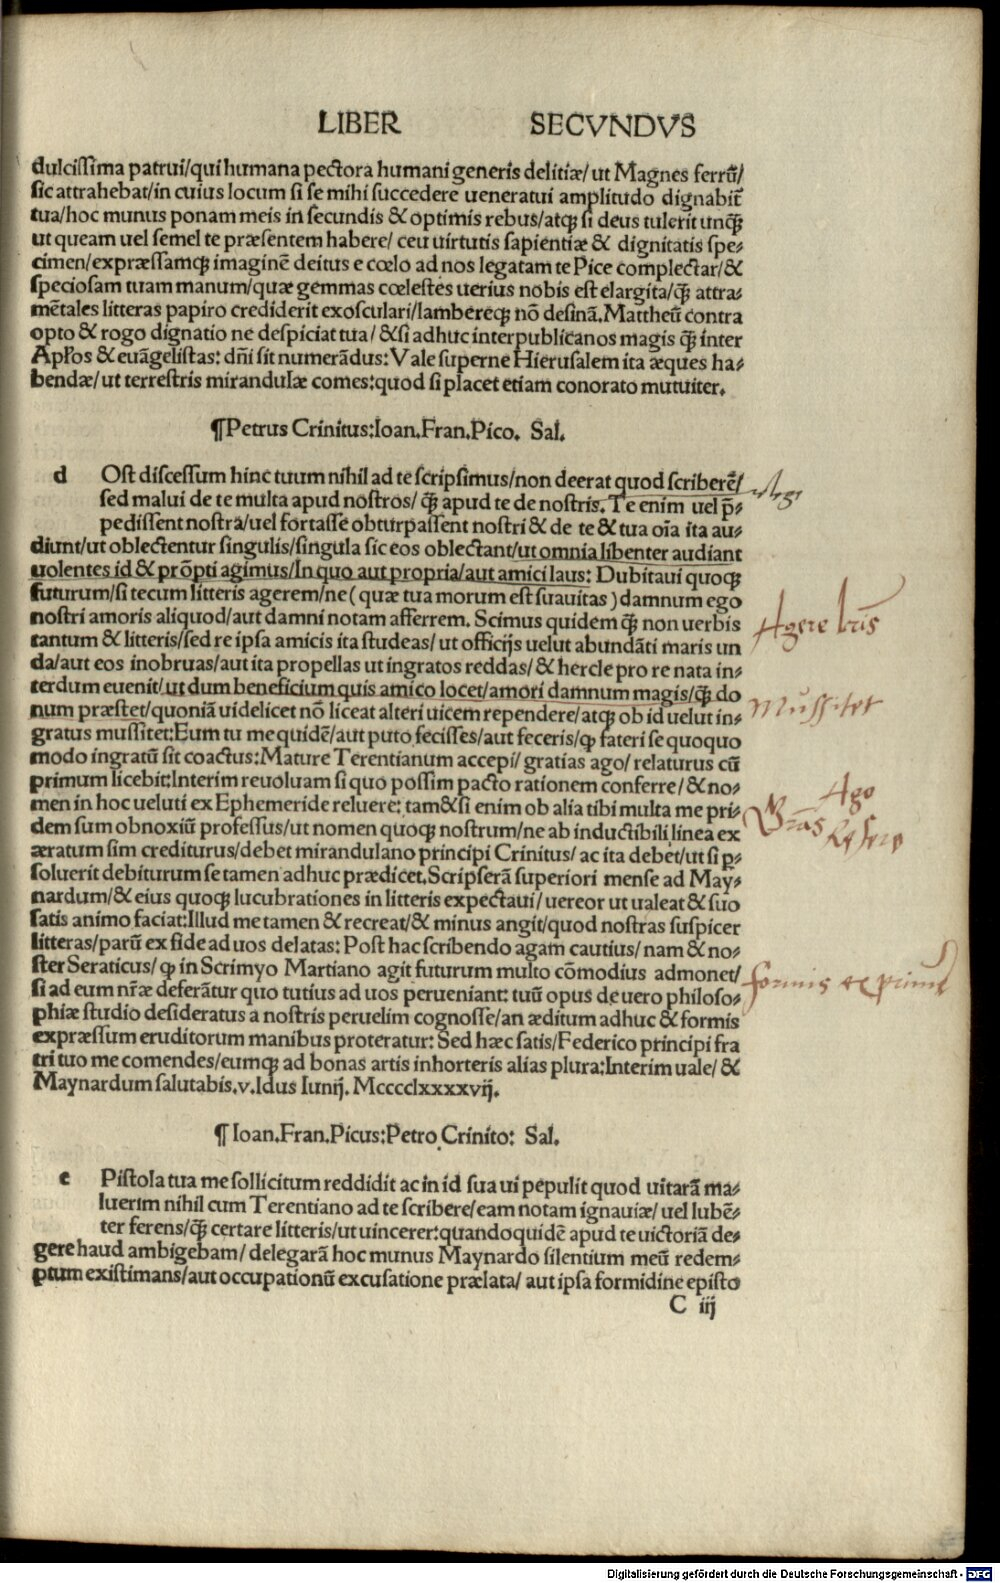 LIBER SECVNDVS
dulcissima patrui/qui humana pectora humani generis delitiæ/ut Magnes ferrū/
sic attrahebat/in cuius locum si se mihi succedere ueneratui amplitudo dignabit᷑
tua/hoc munus ponam meis in secundis & optimis rebus/atqꝫ si deus tulerit unqꝫ̃
ut queam uel semel te præsentem habere/ ceu uirtutis sapientiæ & dignitatis spe⸗
cimen/expræssamqꝫ imaginē deitus e cœlo ad nos legatam te Pice complectar/&
speciosam tuam manum/quæ gemmas cœlestes uerius nobis est elargita/qꝫ̃ attra⸗
mētales litteras papiro crediderit exosculari/lambereqꝫ nō desinã. Mattheū contra
opto & rogo dignatio ne despiciat tua/ &si adhuc inter publicanos magis qꝫ̃ inter
Apłos & euãgelistas: dñi sit numerãdus: Vale superne Hierusalem ita æques ha⸗
bendæ/ut terrestris mirandulæ comes:quod si placet etiam conorato mutuiter.
¶Petrus Crinitus:Ioan.Fran.Pico. Sal.
d Ost discessum hinc tuum nihil ad te scripsimus/non deerat quod scriberē/
sed malui de te multa apud nostros/ qꝫ̃ apud te de nostris. Te enim uel p̄⸗
pedissent nostra/uel fortasse obturpassent nostri & de te & tua oīa ita au⸗
diunt/ut oblectentur singulis/singula sic eos oblectant/ut omnia libenter audiant
uolentes id & prōpti agimus/In quo aut propria/aut amici laus: Dubitaui quoqꝫ
futurum/si tecum litteris agerem/ne ( quæ tua morum est suauitas ) damnum ego
nostri amoris aliquod/aut damni notam afferrem. Scimus quidem qꝫ̃ non uerbis
tantum & litteris/sed re ipsa amicis ita studeas/ ut officijs uelut abundãti maris un
da/aut eos inobruas/aut ita propellas ut ingratos reddas/ & hercle pro re nata in⸗
terdum euenit/ut dum beneficium quis amico locet/amori damnum magis/qꝫ̃ do
num præstet/quoniã uidelicet nō liceat alteri uicem rependere/atqꝫ ob id uelut in⸗
gratus mussitet:Eum tu me quidē/aut puto fecisses/aut feceris/ꝙ fateri se quoquo
modo ingratū sit coactus:Mature Terentianum accepi/ gratias ago/ relaturus cū
primum licebit:Interim reuoluam si quo possim pacto rationem conferre/ & no⸗
men in hoc ueluti ex Ephemeride reluere: tam&si enim ob alia tibi multa me pri⸗
dem sum obnoxiū professus/ut nomen quoqꝫ nostrum/ne ab inductibili linea ex
æratum sim crediturus/debet mirandulano principi Crinitus/ ac ita debet/ut si ꝑ⸗
soluerit debiturum se tamen adhuc prædicet.Scripserã superiori mense ad May⸗
nardum/& eius quoqꝫ lucubrationes in litteris expectaui/ uereor ut ualeat & suo
satis animo faciat:Illud me tamen & recreat/& minus angit/quod nostras suspicer
litteras/parū ex fide ad uos delatas: Post hac scribendo agam cautius/ nam & no⸗
ster Seraticus/ ꝙ in Scrimyo Martiano agit futurum multo cōmodius admonet/
si ad eum nr̄æ deferãtur quo tutius ad uos perueniant: tuū opus de uero philoso⸗
phiæ studio desideratus a nostris peruelim cognosse/an æditum adhuc & formis
expræssum eruditorum manibus proteratur: Sed hæc satis/Federico principi fra
tri tuo me comendes/eumqꝫ ad bonas artis inhorteris alias plura:Interim uale/ &
Maynardum salutabis.v.Idus Iunij. Mcccclxxxxvij.
¶Ioan.Fran.Picus:Petro Crinito: Sal.
e Pistola tua me sollicitum reddidit ac in id sua ui pepulit quod uitarã ma⸗
luerim nihil cum Terentiano ad te scribere/eam notam ignauiæ/ uel lubē⸗
ter ferens/qꝫ̃ certare litteris/ut uincerer:quandoquidē apud te uictoriã de⸗
gere haud ambigebam/ delegarã hoc munus Maynardo silentium meū redem⸗
ptum existimans/aut occupationū excusatione prælata/ aut ipsa formidine episto
C iij
Agere
Mussitet
Ago
formis
Digitalisierung gefördert durch die Deutsche Forschungsgemeinschaft - DFG